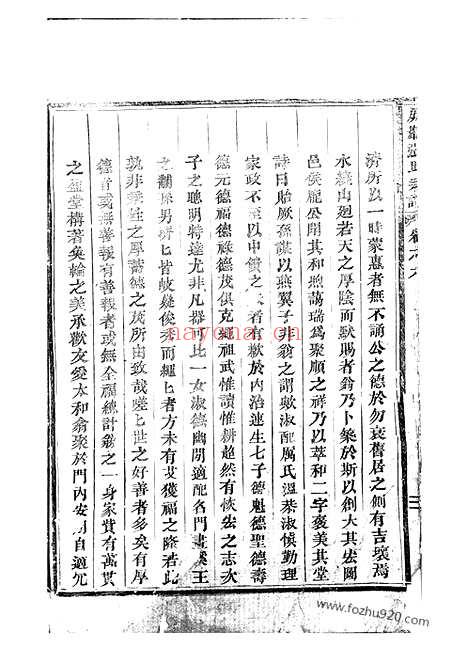 濟所以一時蒙惠者無不誦公之德於勿衰舊居之側有吉壤焉
水繞山迴若天之厚陰而默賜者翁乃卜築於斯以創大其宏圖
邑侯龐公聞其和煦藹瑞為聚順之祥乃以萃和二字褒美其堂
詩曰貽厥孫謀以燕翼子非翁之謂歟淑配厲氏溫恭淑慎勤理
家政不至以中饋之 者有歉於內治連生七子德魁德聖德壽
德元德福德祿德茂俱克繩祖武惟讀惟耕超然有恢宏之志次
子之聰明特達尤非凡器可比一女淑德幽閒適配名門畫溪王
之 男孫皆岐嶷俊秀而繩匕者方未有艾獲福之隆若此
孰非乘性之厚蓄德之茂所由致哉嗟匕世之好善者多矣有厚
德者或無善報有善報者或無全福統計翁之一身家貲有萬貫
之 堂構著奐輪之美承歡友愛太和翁聚於門內安 自適冗
卷之六
三
nayona.cn
www.fozhu920.com